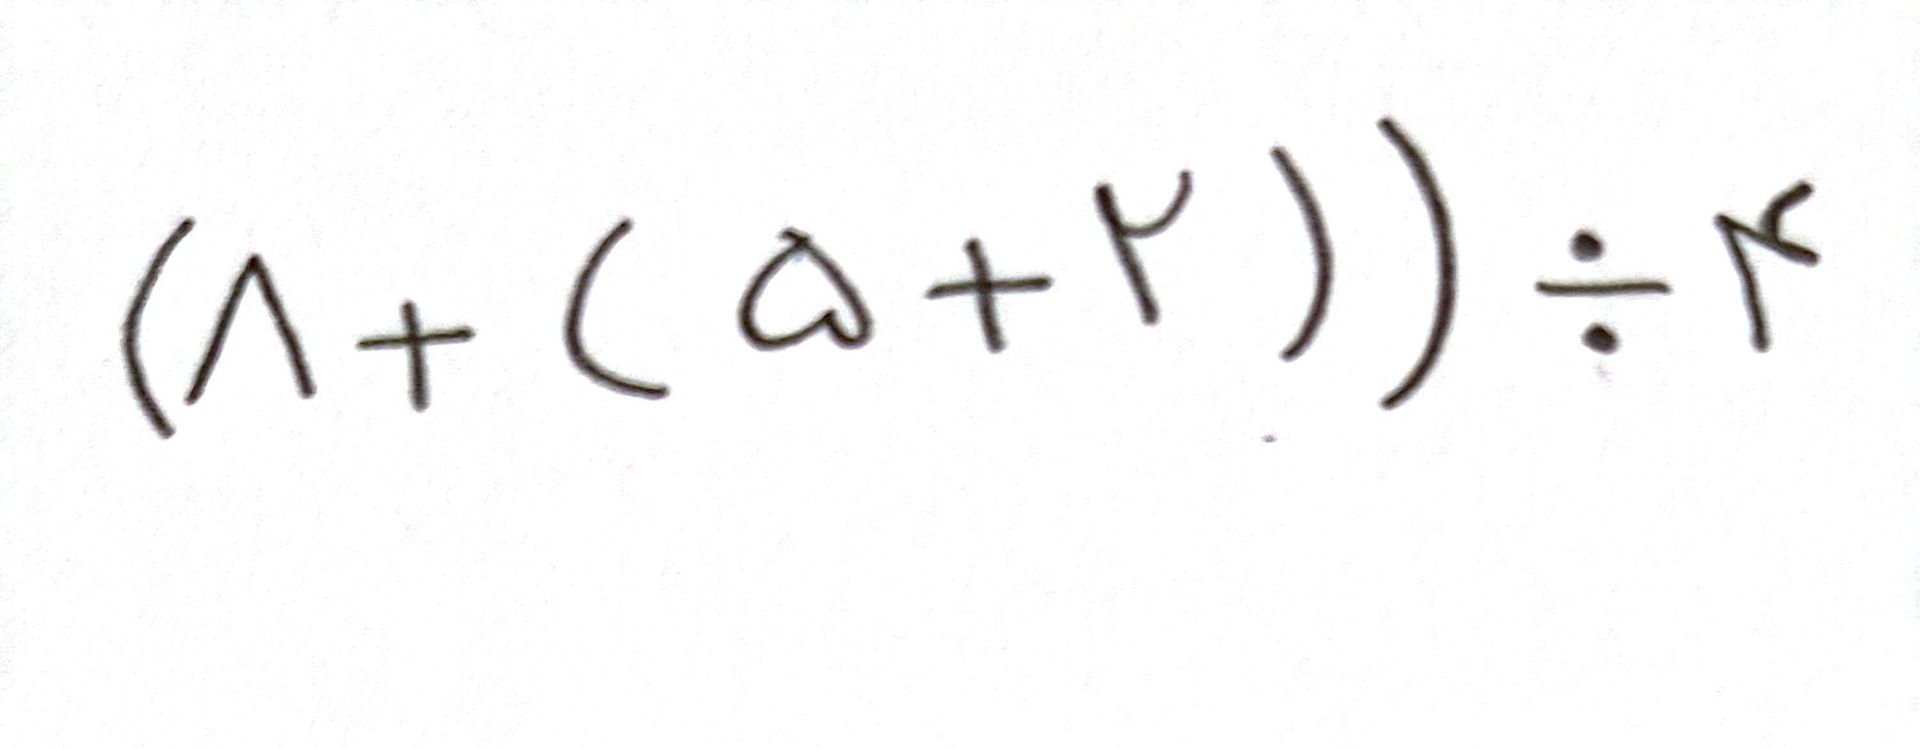 (۸+(۵+۲))÷۴